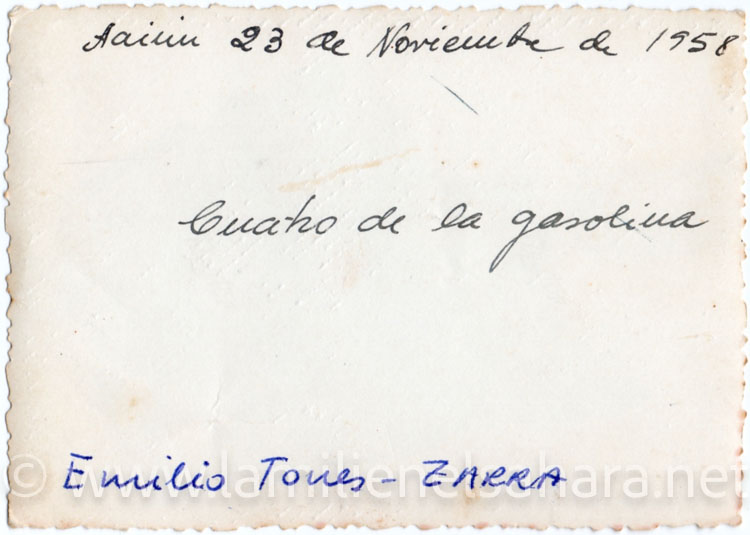 Aaiun 23 de Noviembre de 1958
Cuatro de la gasolina
Emilio Torres - ZARRA
© www.lamilienelsahara.net